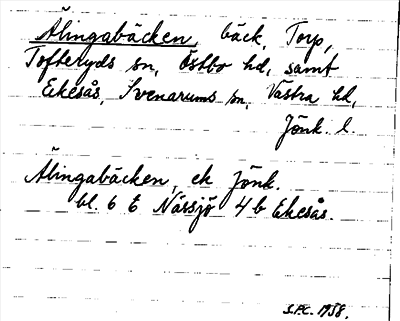 Ålingabäcken, bäck, Torp,
Tofteryds sn, Östbo hd, samt
Ekesås, Svenarums sn, Västra hd,
Jönk. l.
Ålingabäcken, ek Jönk.
bl. 6 E Nässjö 4b Ekesås.
S.P.C. 1958.